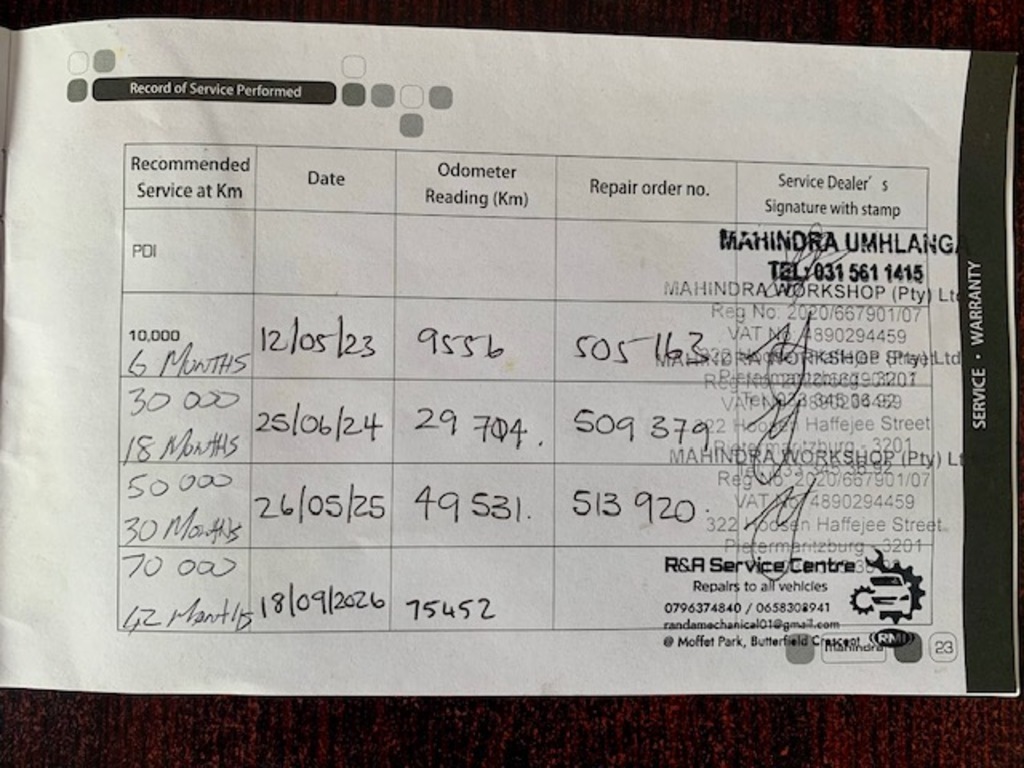 Record of Service Performed
Recommended Service at Km
Date
Odometer Reading (Km)
Repair order no.
Service Dealer's Signature with stamp
PDI
MAHINDRA UMHLANGA
TEL: 031 561 1415
10,000
6 MONTHS
12/05/23
9556
505 163
MAHINDRA WORKSHOP (Pty) Ltd
Reg No: 2020/667901/07
VAT No 4890294459
30 000
18 MONTHS
25/06/24
29 704.
509 379
MAHINDRA WORKSHOP (Pty) Ltd
322 Hoosen Haffejee Street
Pietermaritzburg - 3201
50 000
30 Months
26/05/25
49 531.
513 920.
MAHINDRA WORKSHOP (Pty) Lt
Reg No: 2020/667901/07
VAT No 4890294459
322 Hoosen Haffejee Street
Pietermaritzburg - 3201
70 000
42 Months
18/09/2026
75452
R&A Service Centre
Repairs to all vehicles
0796374840 / 0658308941
randamechanical01@gmail.com
@ Moffet Park, Butterfield Crescent
RMI
mahindra
23
SERVICE • WARRANTY